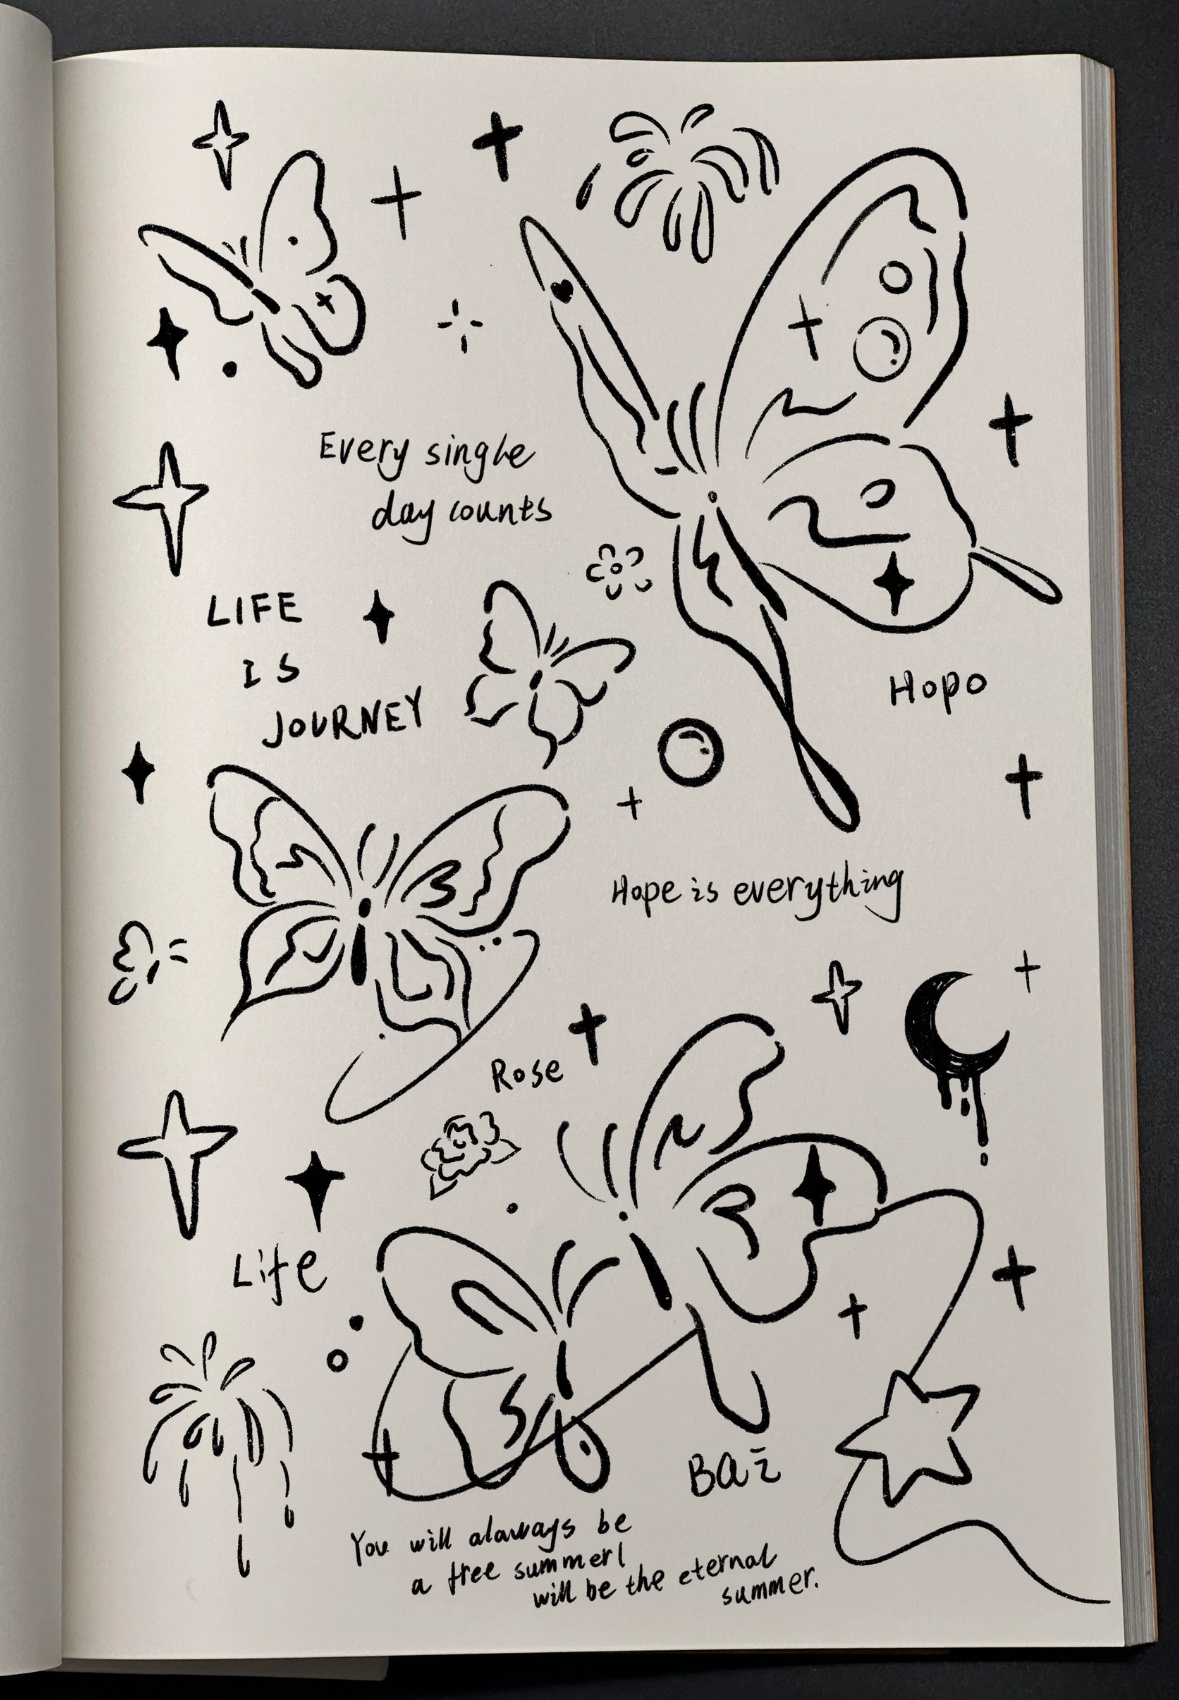 Every single
day counts
LIFE
IS
JOURNEY
Hopo
Hope is everything
Rose
Life
You will alaways be
a free summer!
will be the eternal
summer.